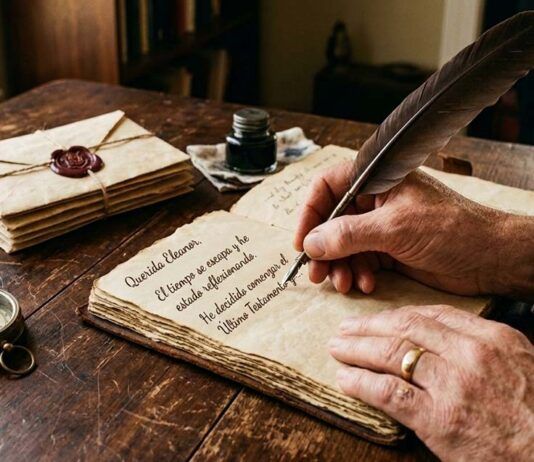 Querida Eleanor,
El tiempo se escapa y he
estado reflexionando.
He decidido comenzar el
Último Testamento